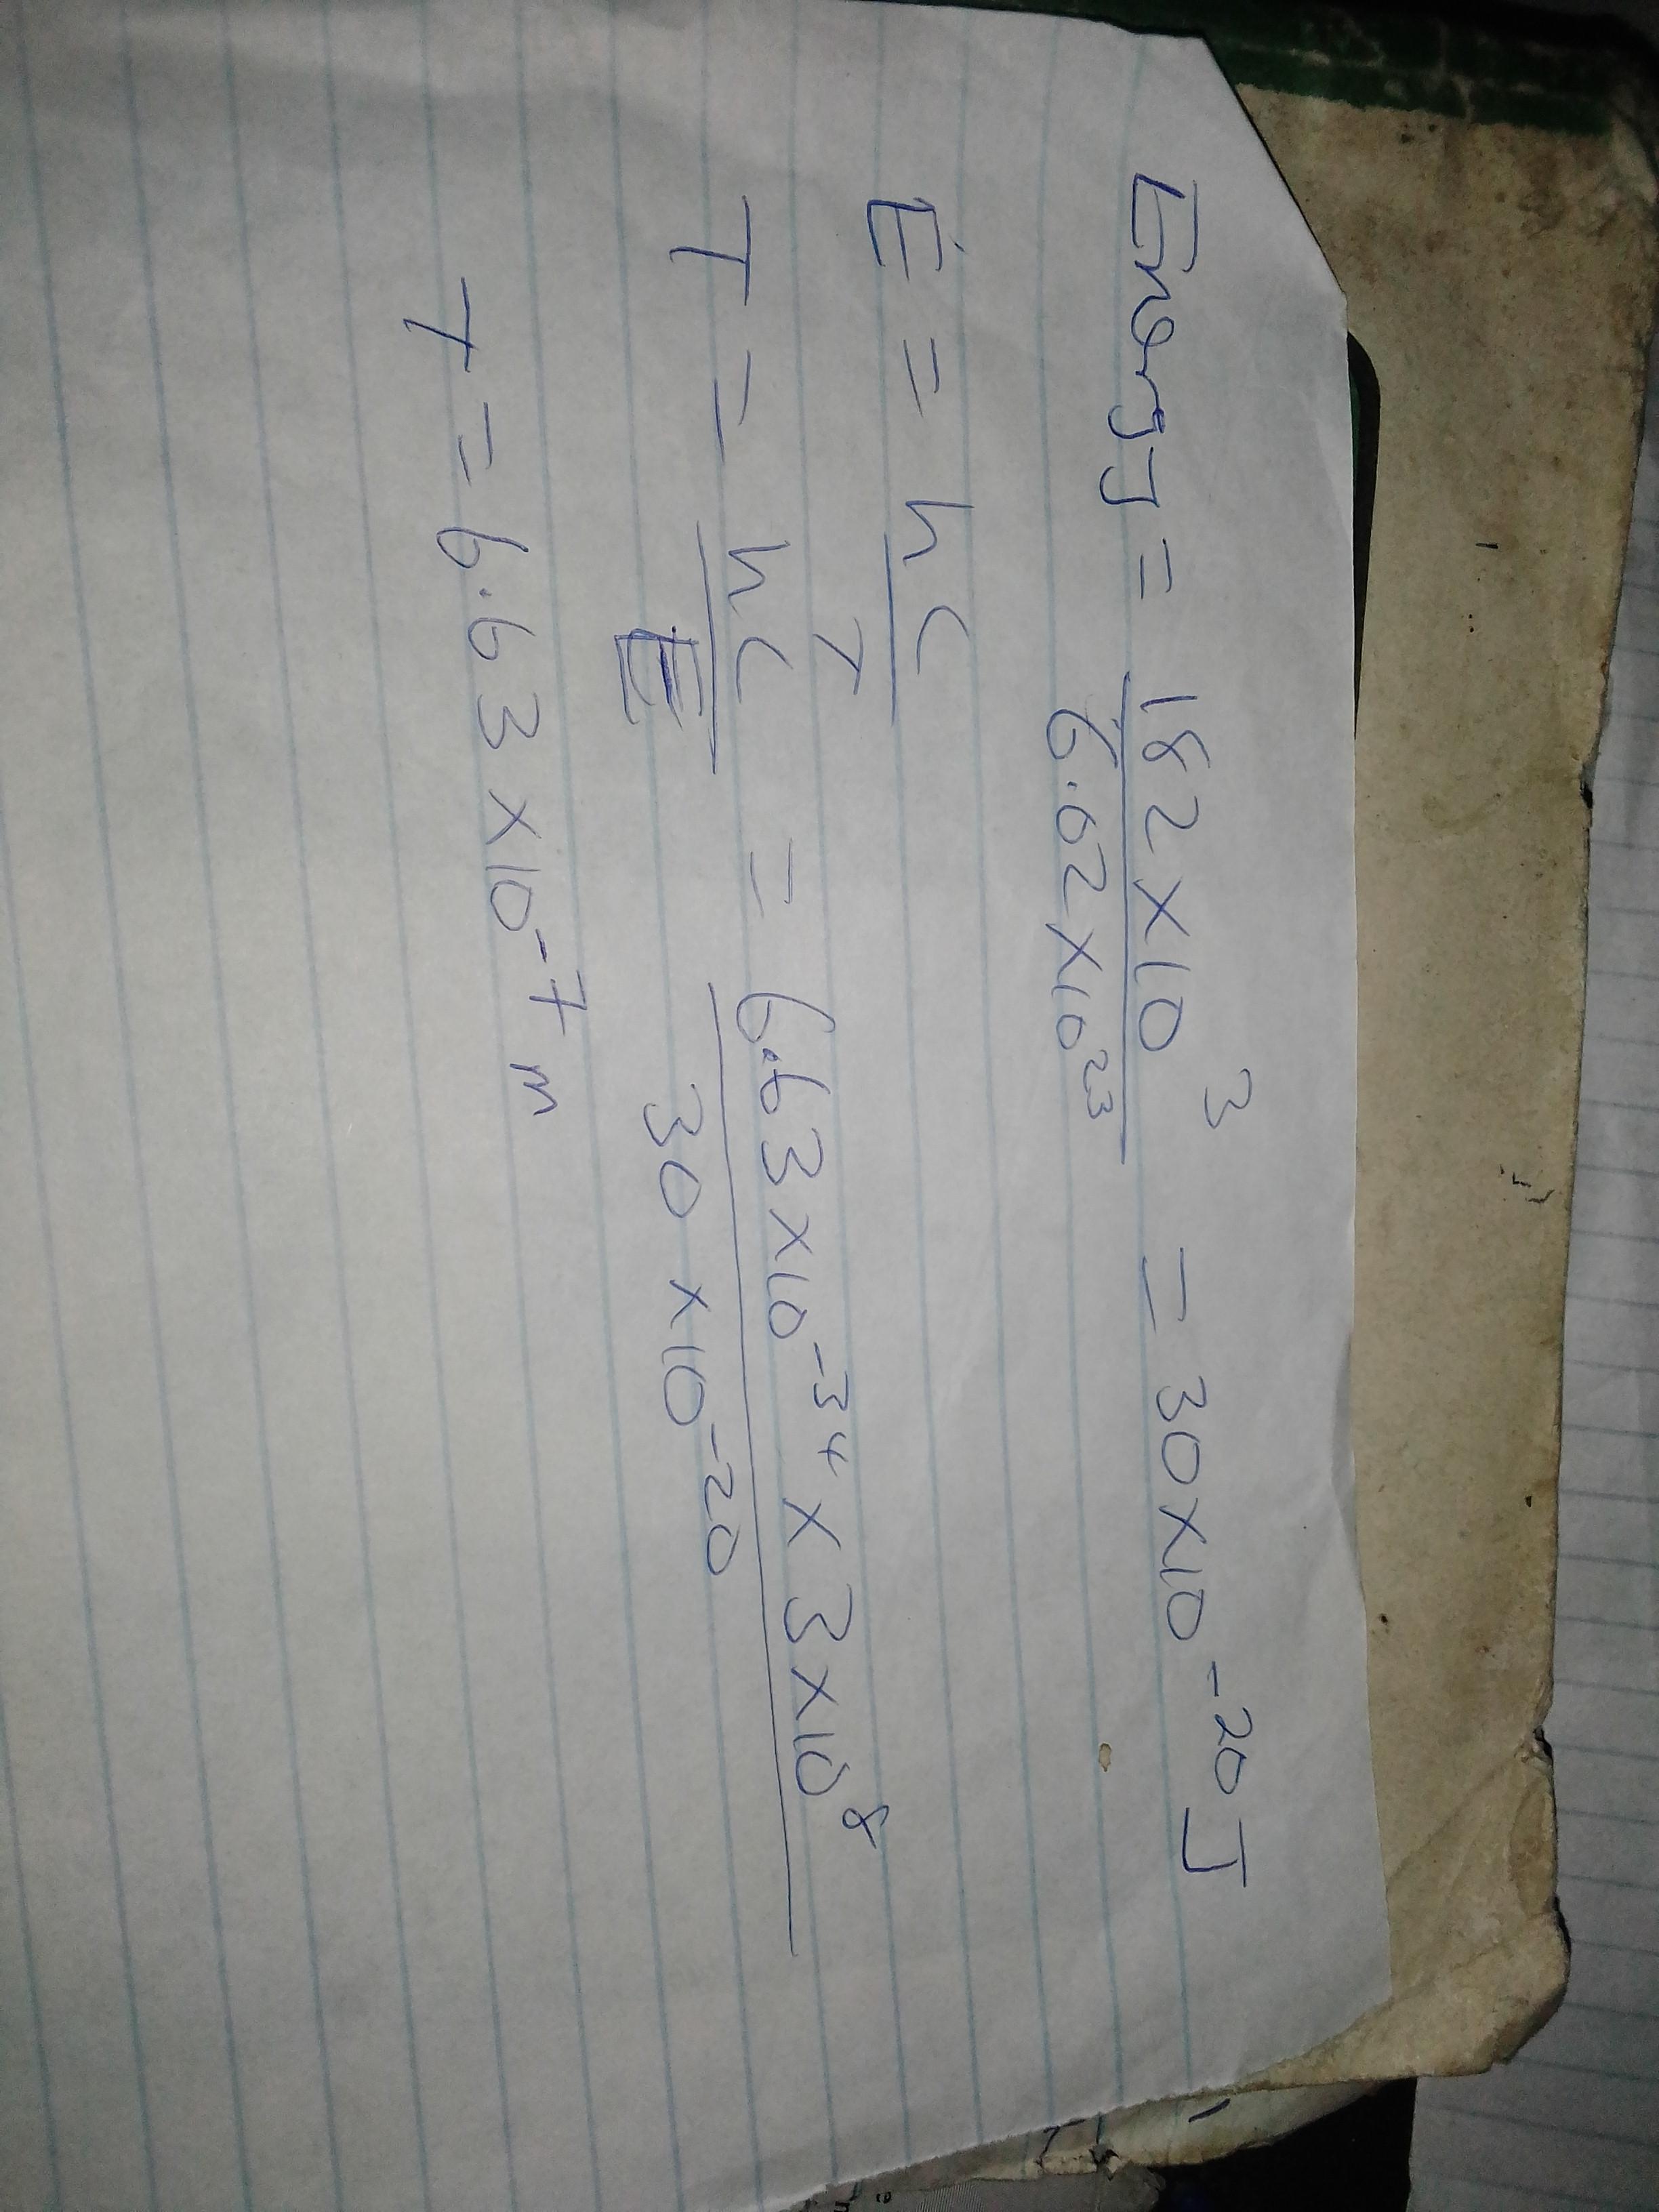 Energy = 182 x 10³ / 6.02 x 10²³ = 30 x 10⁻²⁰ J
E = hc / T
T = hc / E = 6.63 x 10⁻³⁴ x 3 x 10⁸ / 30 x 10⁻²⁰
T = 6.63 x 10⁻⁷ m